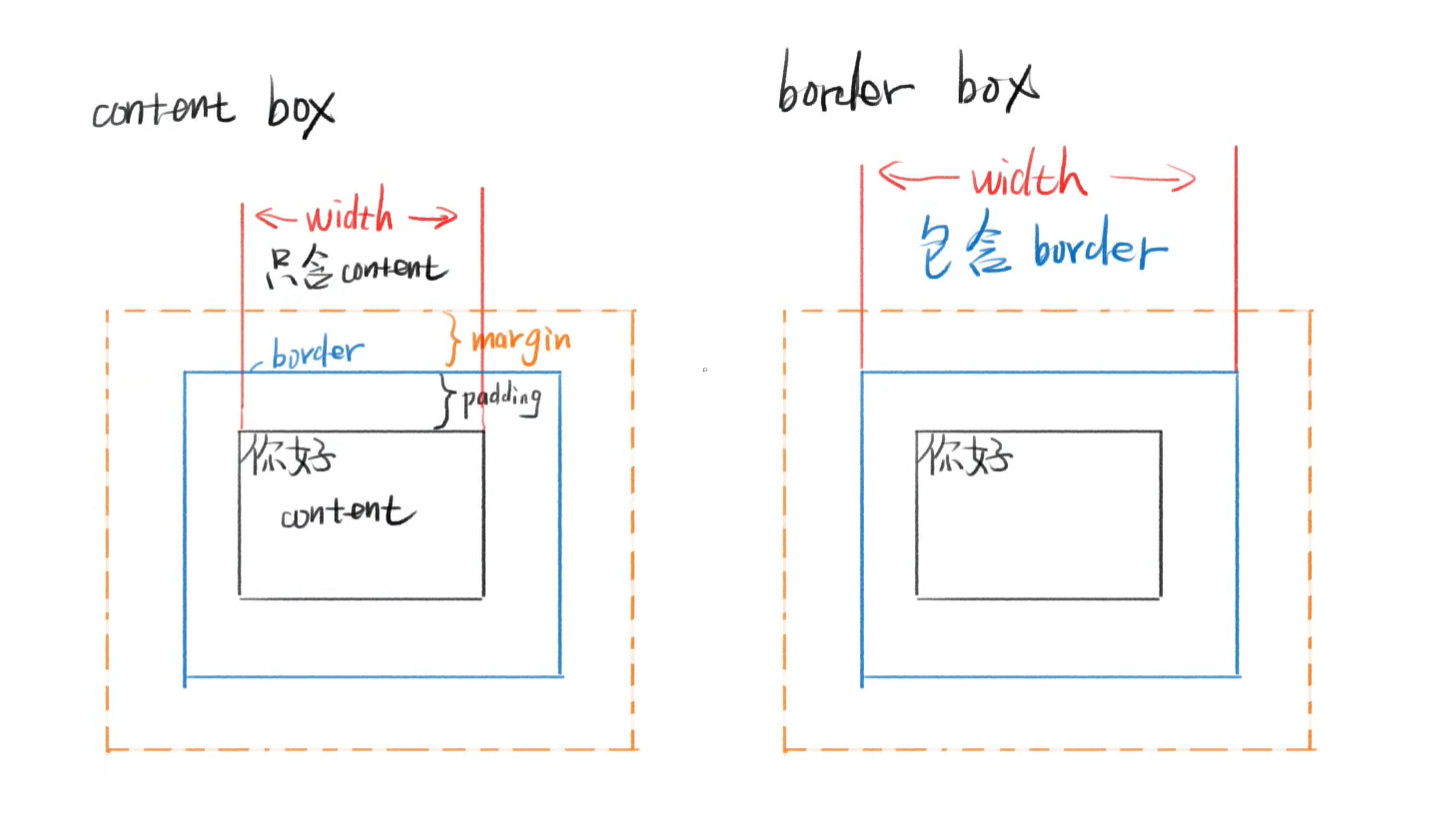 content box
width
只含content
margin
border
padding
你好
content
border box
width
包含 border
你好